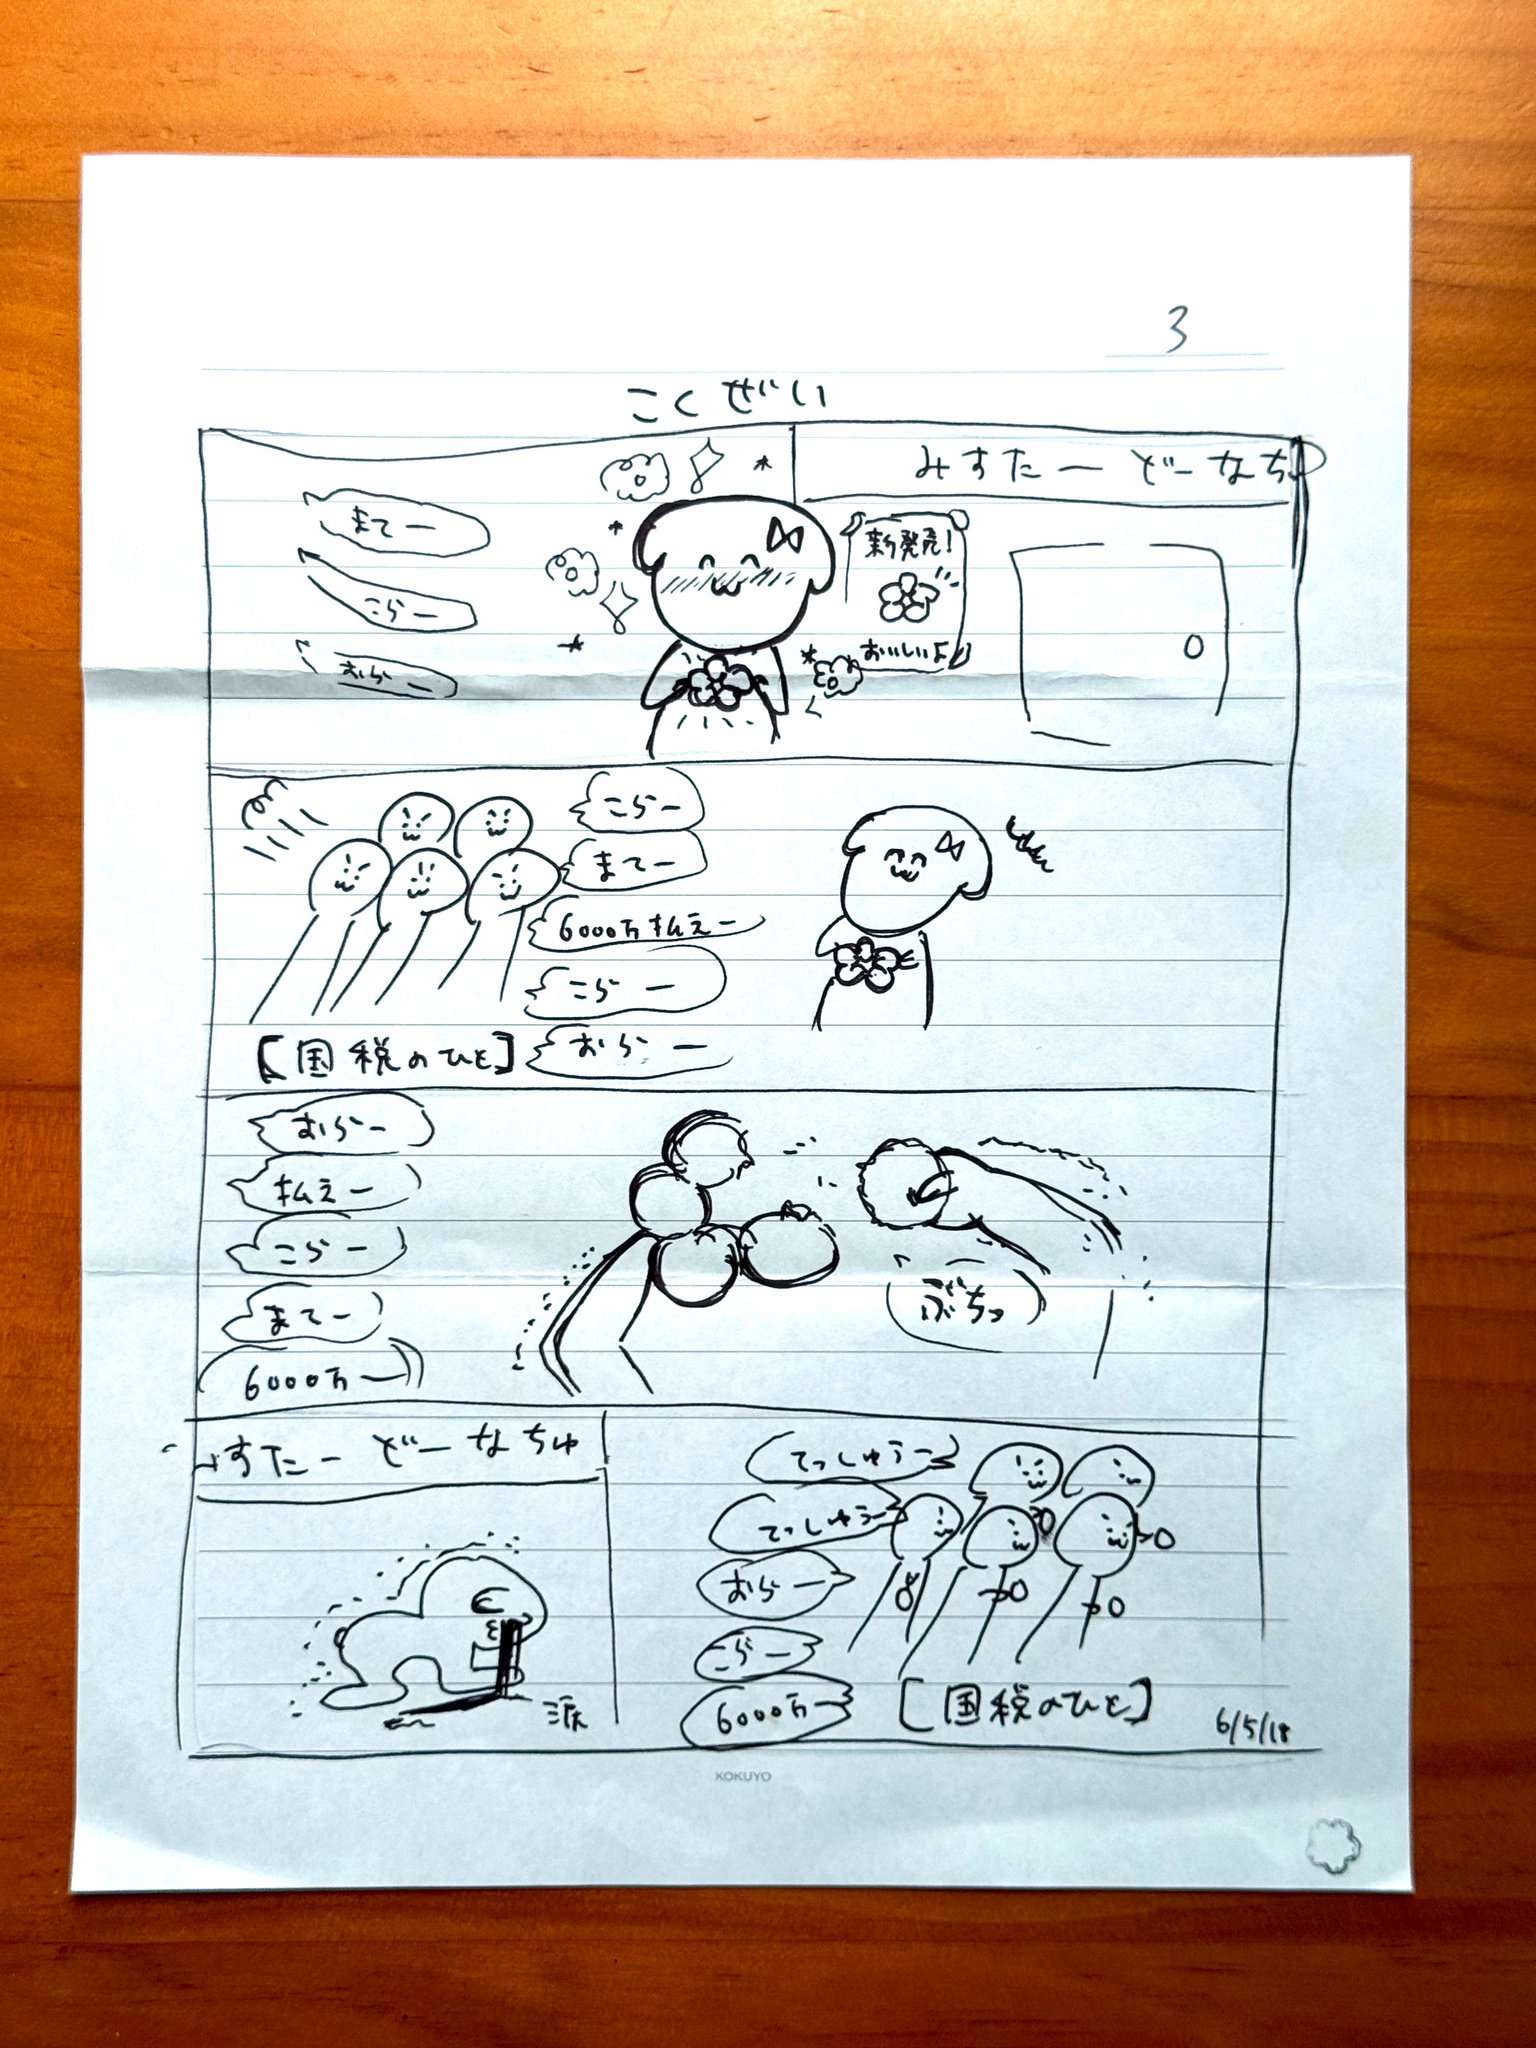 3
こくぜい
みすたーどーなちゅ
新発売!
おいしいよ
まてー
こらー
おらー
こらー
まてー
6000万払えー
こらー
おらー
[国税のひと]
おらー
払えー
こらー
まてー
6000万ー
ぶちっ
てっしゅうー
てっしゅうー
おらー
こらー
6000万ー
[国税のひと]
みすたーどーなちゅ
涙
6/5/18
KOKUYO